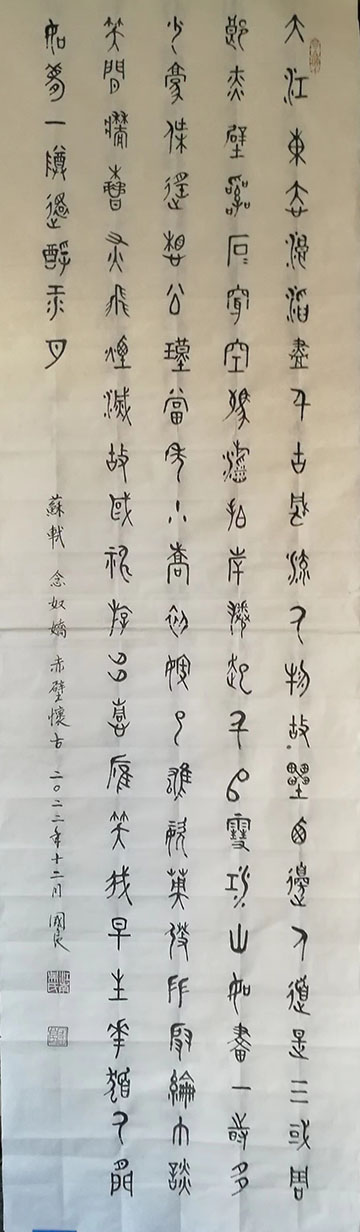 大江東去浪淘盡千古風流人物故壘西邊人道是三或周
郎赤壁亂石穿空驚濤拍岸捲起千堆雪江山如畫一時多
少豪傑遙想公瑾當年小喬初嫁了雄姿英發羽扇綸巾談
笑間檣櫓灰飛煙滅故國神游多情應笑我早生華髮人間
如夢一樽還酹江月
蘇軾 念奴嬌 赤壁懷古 二〇二二年十二月 國良